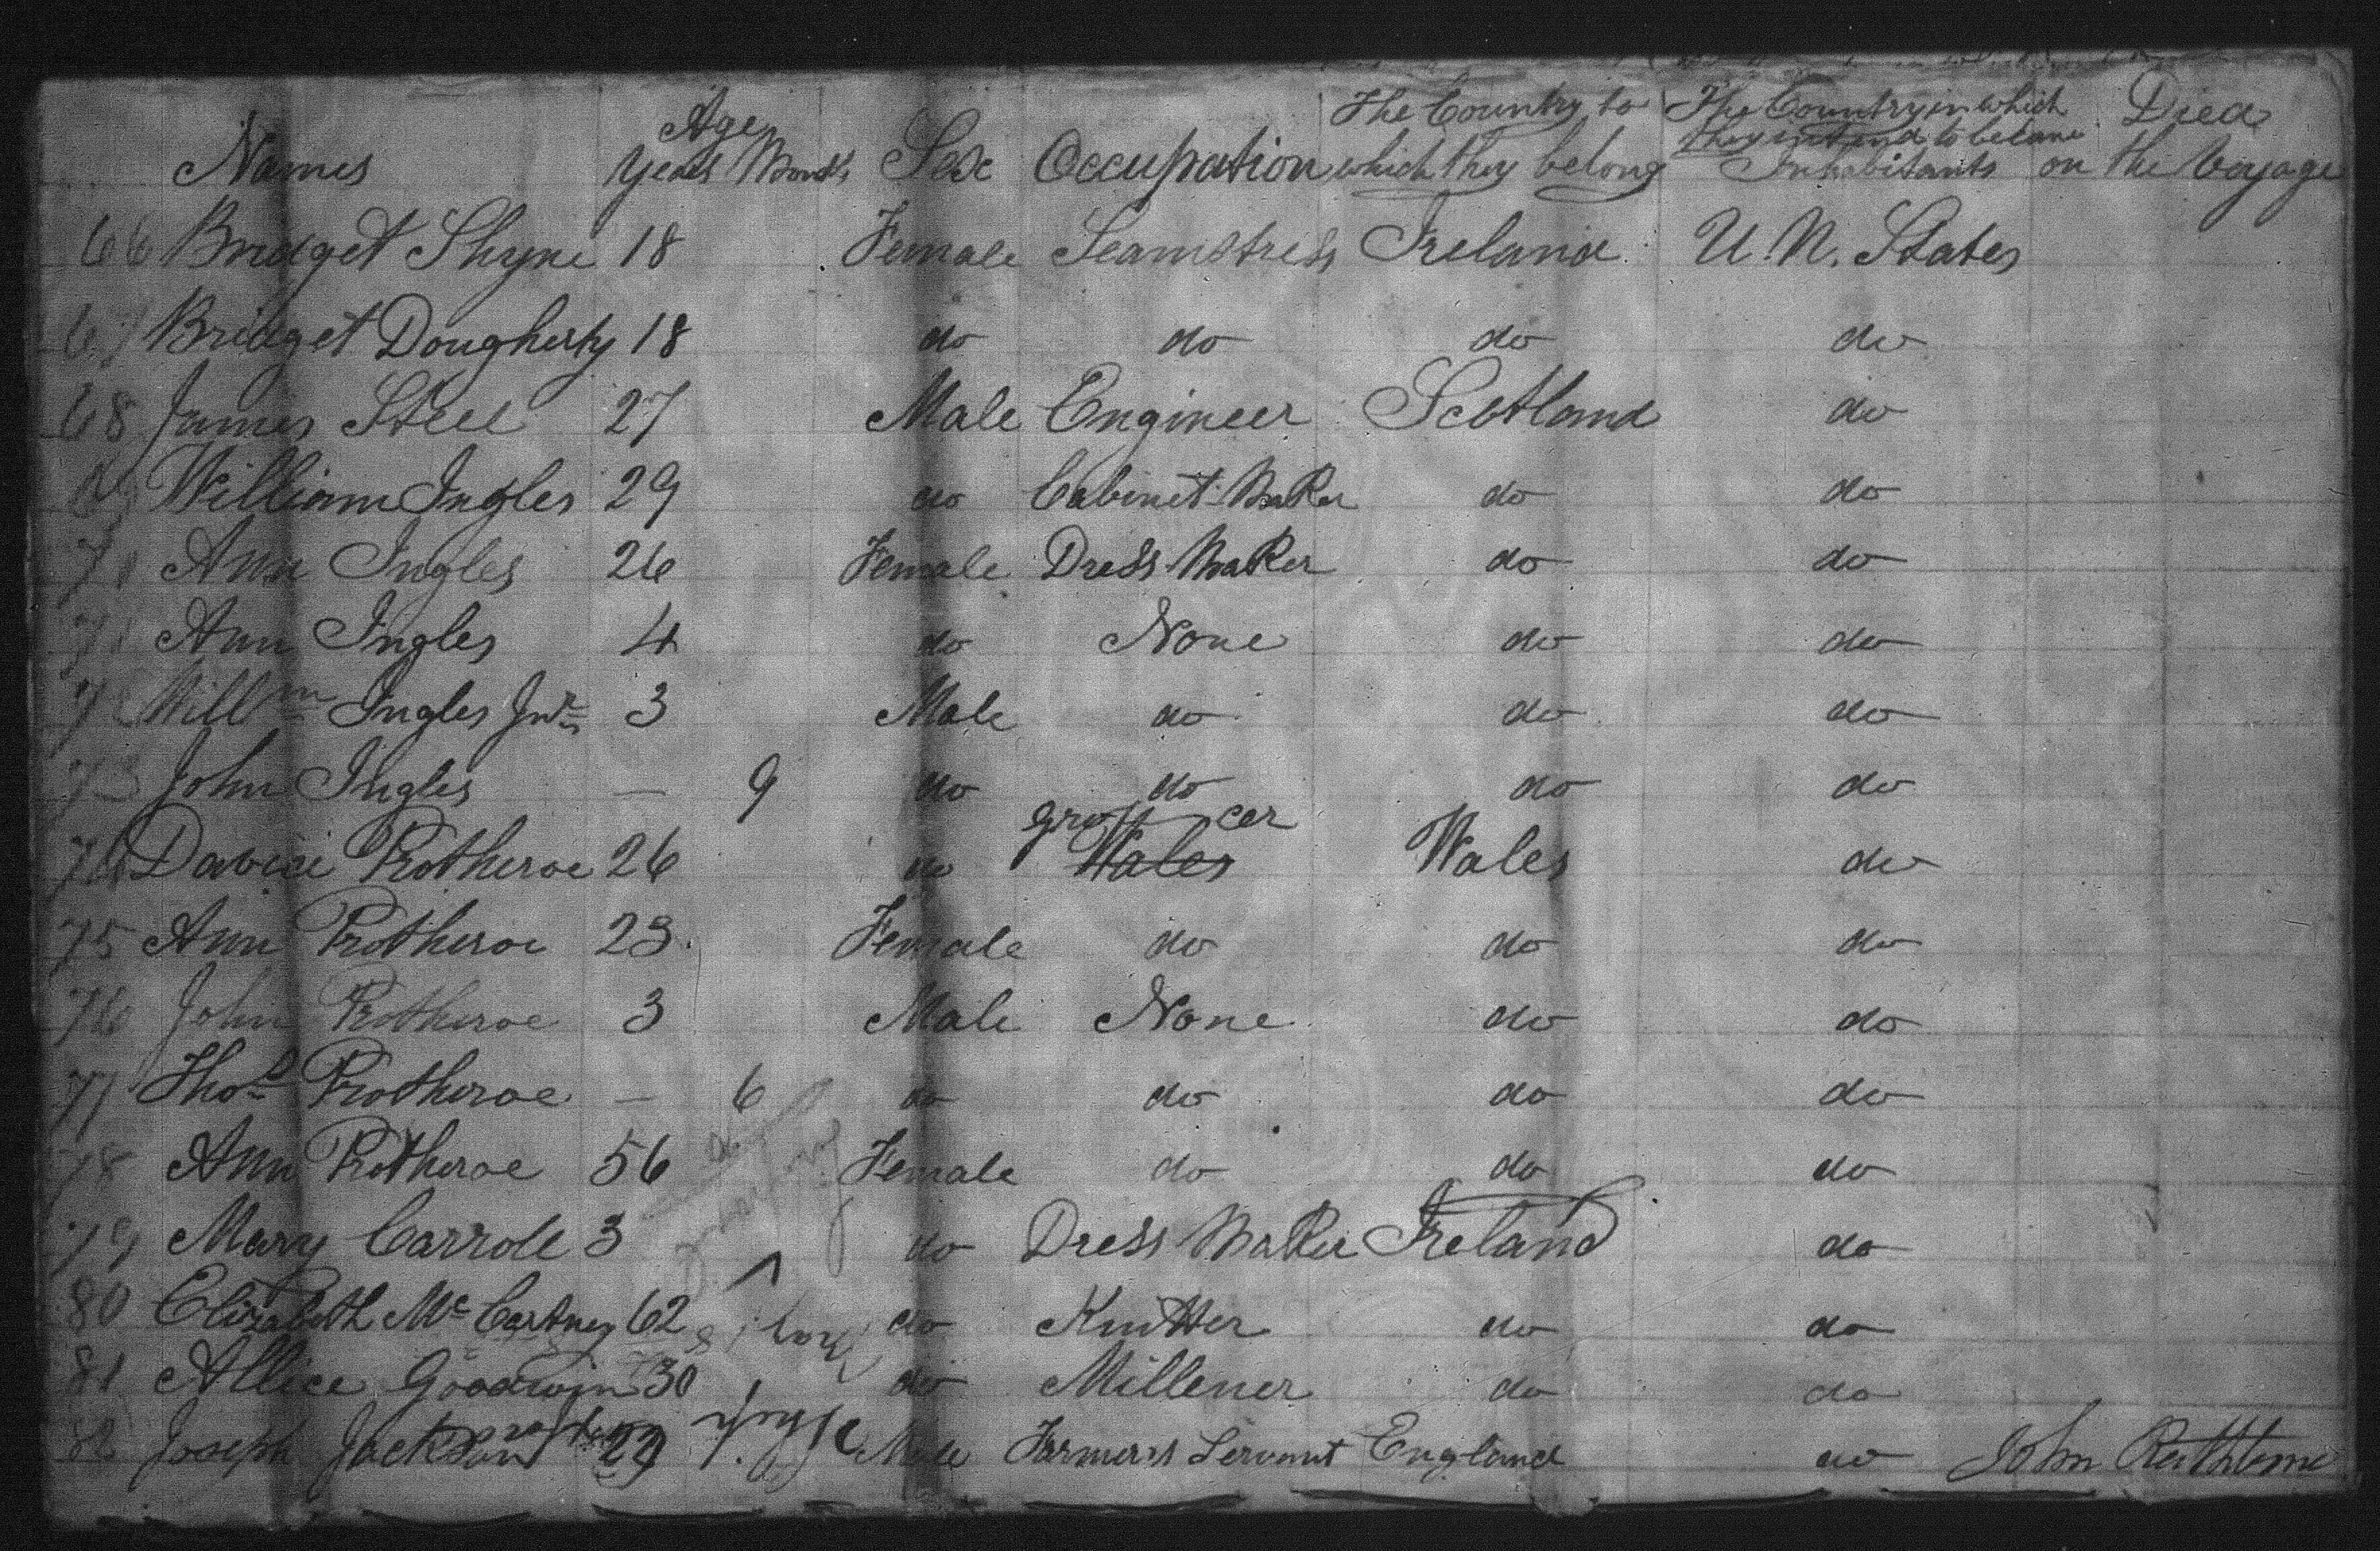 Names Age Years Months Sex Occupation The Country to which they belong The Country in which they intend to become Inhabitants Died on the Voyage
66 Bridget Shyne 18 Female Seamstress Ireland U. N. States
67 Bridget Dougherty 18 do do do do
68 James Steel 27 Male Engineer Scotland do
69 William Ingles 29 do Cabinet Maker do do
70 Ann Ingles 26 Female Dress Maker do do
71 Ann Ingles 4 do None do do
72 Willm Ingles Junr 3 Male do do do
73 John Ingles — 9 do do do do
grocer
74 David Protheroe 26 do Wales Wales do
75 Ann Protheroe 23 Female do do do
76 John Protheroe 3 Male None do do
77 Thos Protheroe — 6 do do do do
78 Ann Protheroe 56 Female do do do
79 Mary Carroll 3 do Dress Maker Ireland do
80 Elizabeth McCartney 62 do Knitter do do
81 Allice Goodwin 30 do Millener do do
82 Joseph Jackson 29 Male Farmers Servant England do John